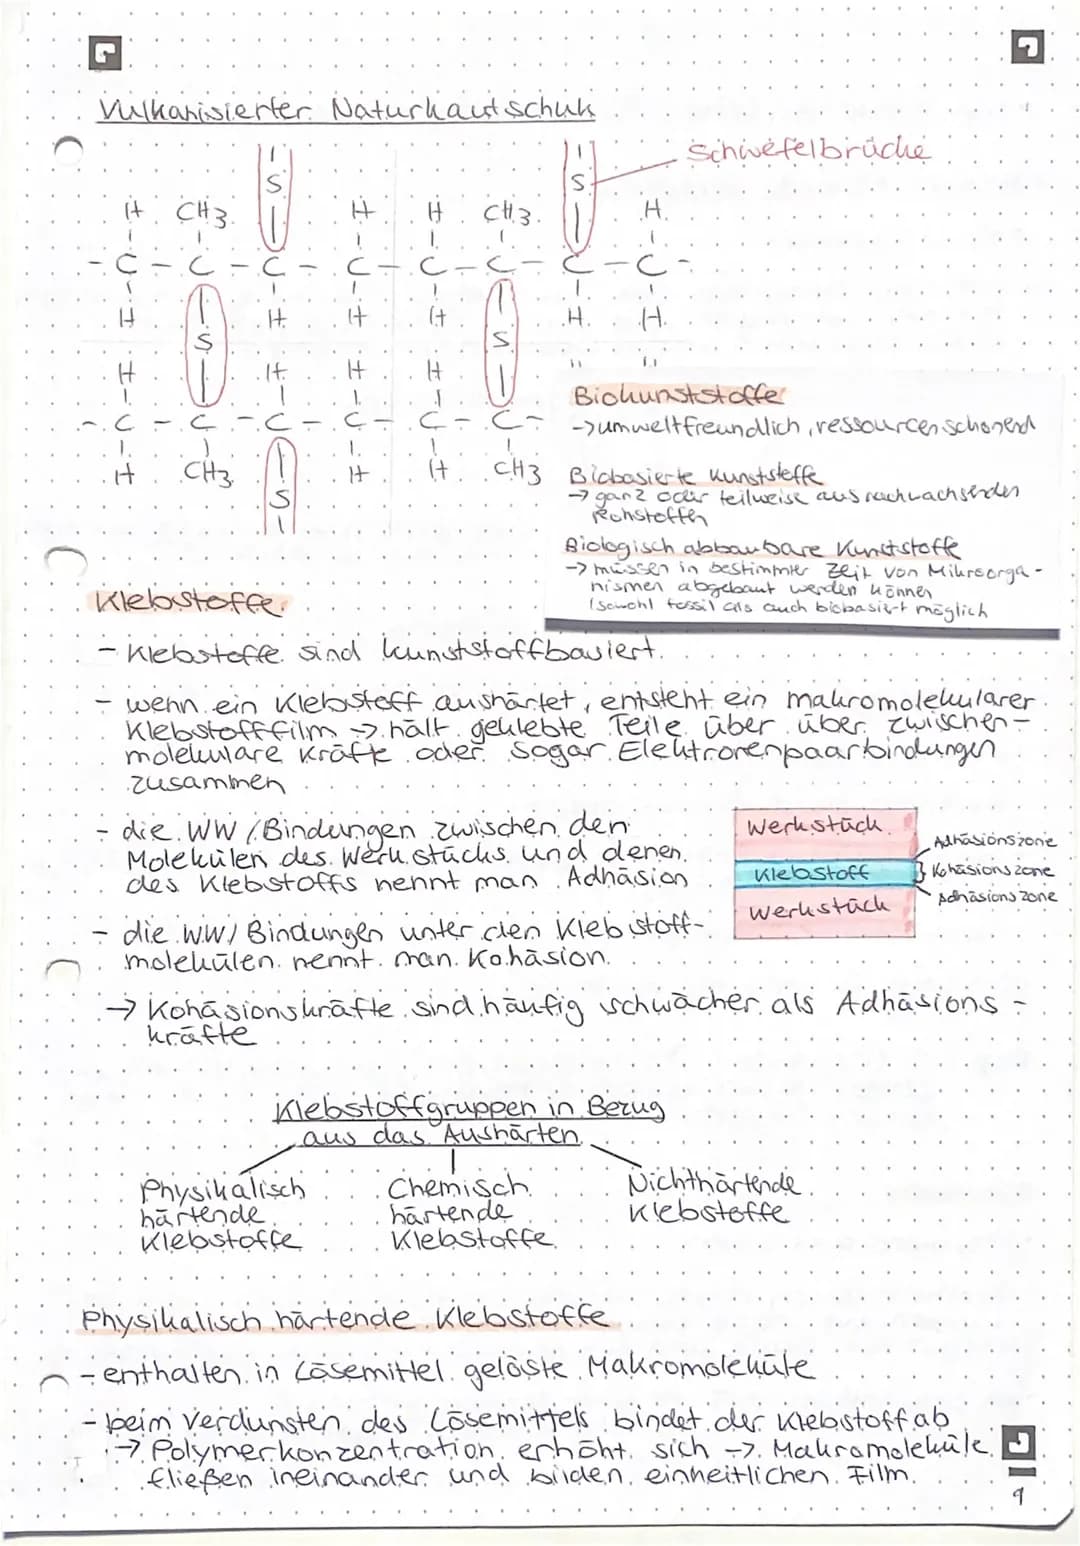 Vulkanisierter Naturkautschuk
Schwefelbrücke
S S
H CH3 H H CH3 H
- C - C - C - C - C - C - C - C -
H H H H H H
S S
H H H H
- C - C - C - C - C - C -
H CH3 H H CH3
S
Biokunststoffe
-> umweltfreundlich, ressourcenschonend
Biobasierte Kunststoffe
-> ganz oder teilweise aus nachwachsenden
Rohstoffen
Biologisch abbaubare Kunststoffe
-> müssen in bestimmter Zeit von Mikroorga-
nismen abgebaut werden können
(sowohl fossil als auch biobasiert möglich
Klebstoffe
- Klebstoffe sind kunststoffbasiert.
- wenn ein Klebstoff aushärtet, entsteht ein makromolekularer
Klebstofffilm -> hält geklebte Teile über über zwischen-
molekulare Kräfte oder sogar Elektronenpaarbindungen
zusammen
- die WW/Bindungen zwischen den
Molekülen des Werkstücks und denen
des Klebstoffs nennt man Adhäsion
Werkstück
Klebstoff
Werkstück
Adhäsionszone
Kohäsionszone
Adhäsionszone
- die WW/Bindungen unter den Klebstoff-
molekülen nennt man Kohäsion.
-> Kohäsionskräfte sind häufig schwächer als Adhäsions-
kräfte
Klebstoffgruppen in Bezug
aus das Aushärten
Physikalisch
härtende
Klebstoffe
Chemisch
härtende
Klebstoffe
Nichthärtende
Klebstoffe
Physikalisch härtende Klebstoffe
- enthalten in Lösemittel gelöste Makromoleküle
- beim Verdunsten des Lösemittels bindet der Klebstoff ab
-> Polymerkonzentration erhöht sich -> Makromoleküle
fließen ineinander und bilden einheitlichen Film.
9